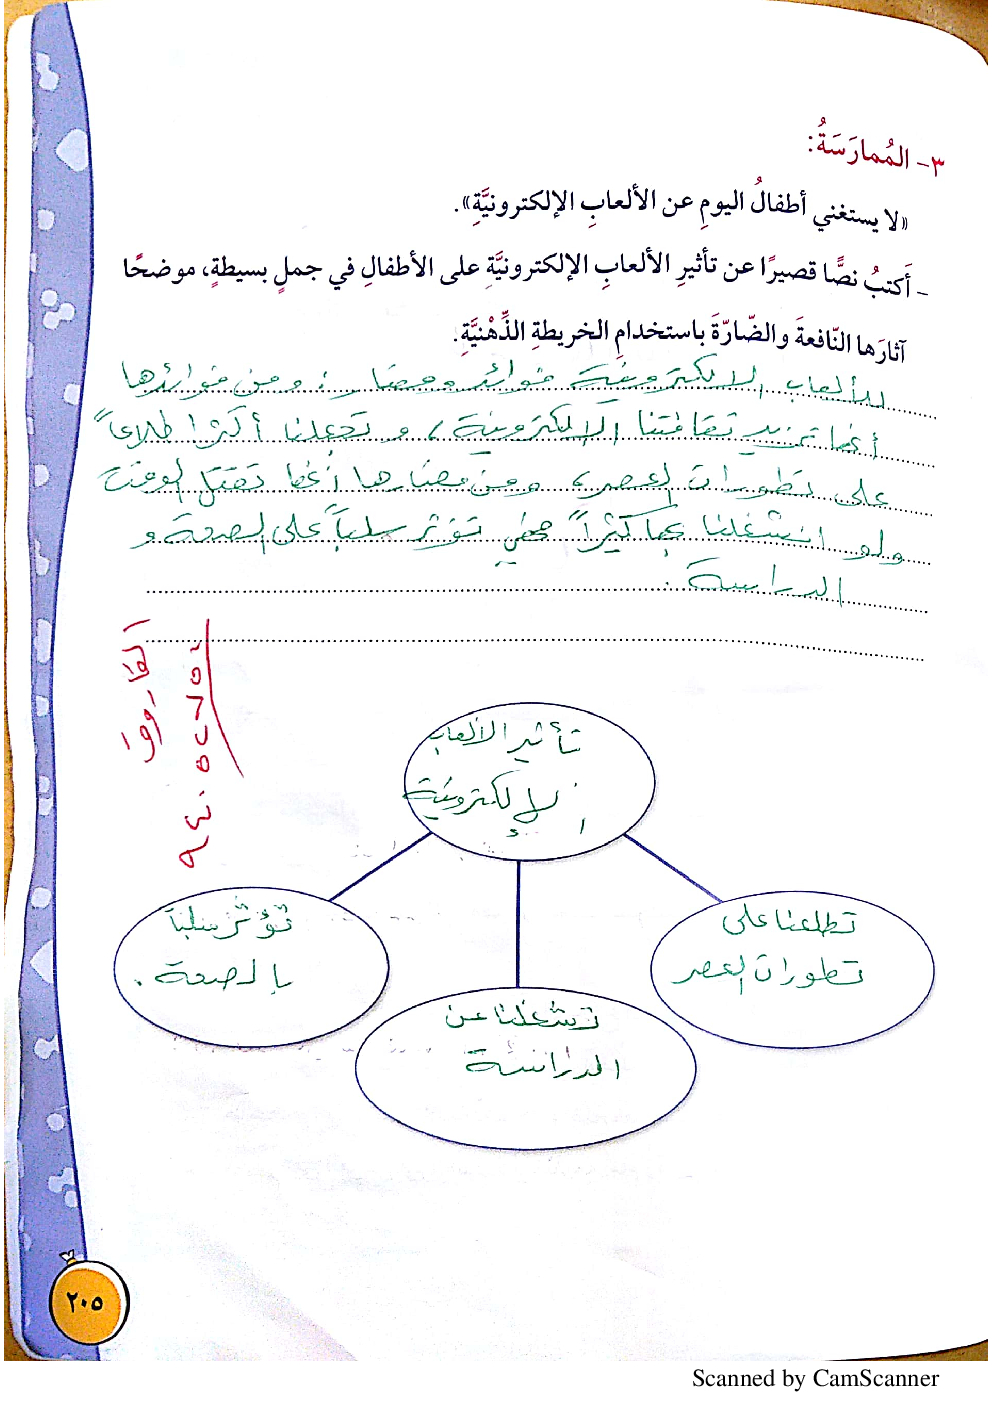 ٣- المُمارَسَةُ:
«لا يستغني أطفالُ اليومِ عن الألعابِ الإلكترونيَّةِ».
- أَكتبُ نصًّا قصيرًا عن تأثيرِ الألعابِ الإلكترونيَّةِ على الأطفالِ في جملٍ بسيطةٍ، موضحًا
آثارَها النّافعةَ والضّارّةَ باستخدامِ الخريطةِ الذِّهْنيَّةِ.
للألعاب الالكترونية فوائد ومضار، ومن فوائدها
أنها تزيد ثقافتنا الالكترونية، و تجعلنا أكثر اطلاعاً
على تطورات العصر، ومن مضارها أنها تقتل الوقت
ولو انشغلنا بها كثيراً فهي تؤثر سلباً على الصحة و
الدراسة.
الفاروق
تأثير الألعاب
الإلكترونية
تطلعنا على
تطورات العصر
تشغلنا عن
الدراسة
تؤثر سلباً
بالصحة.
٢٠٥
Scanned by CamScanner